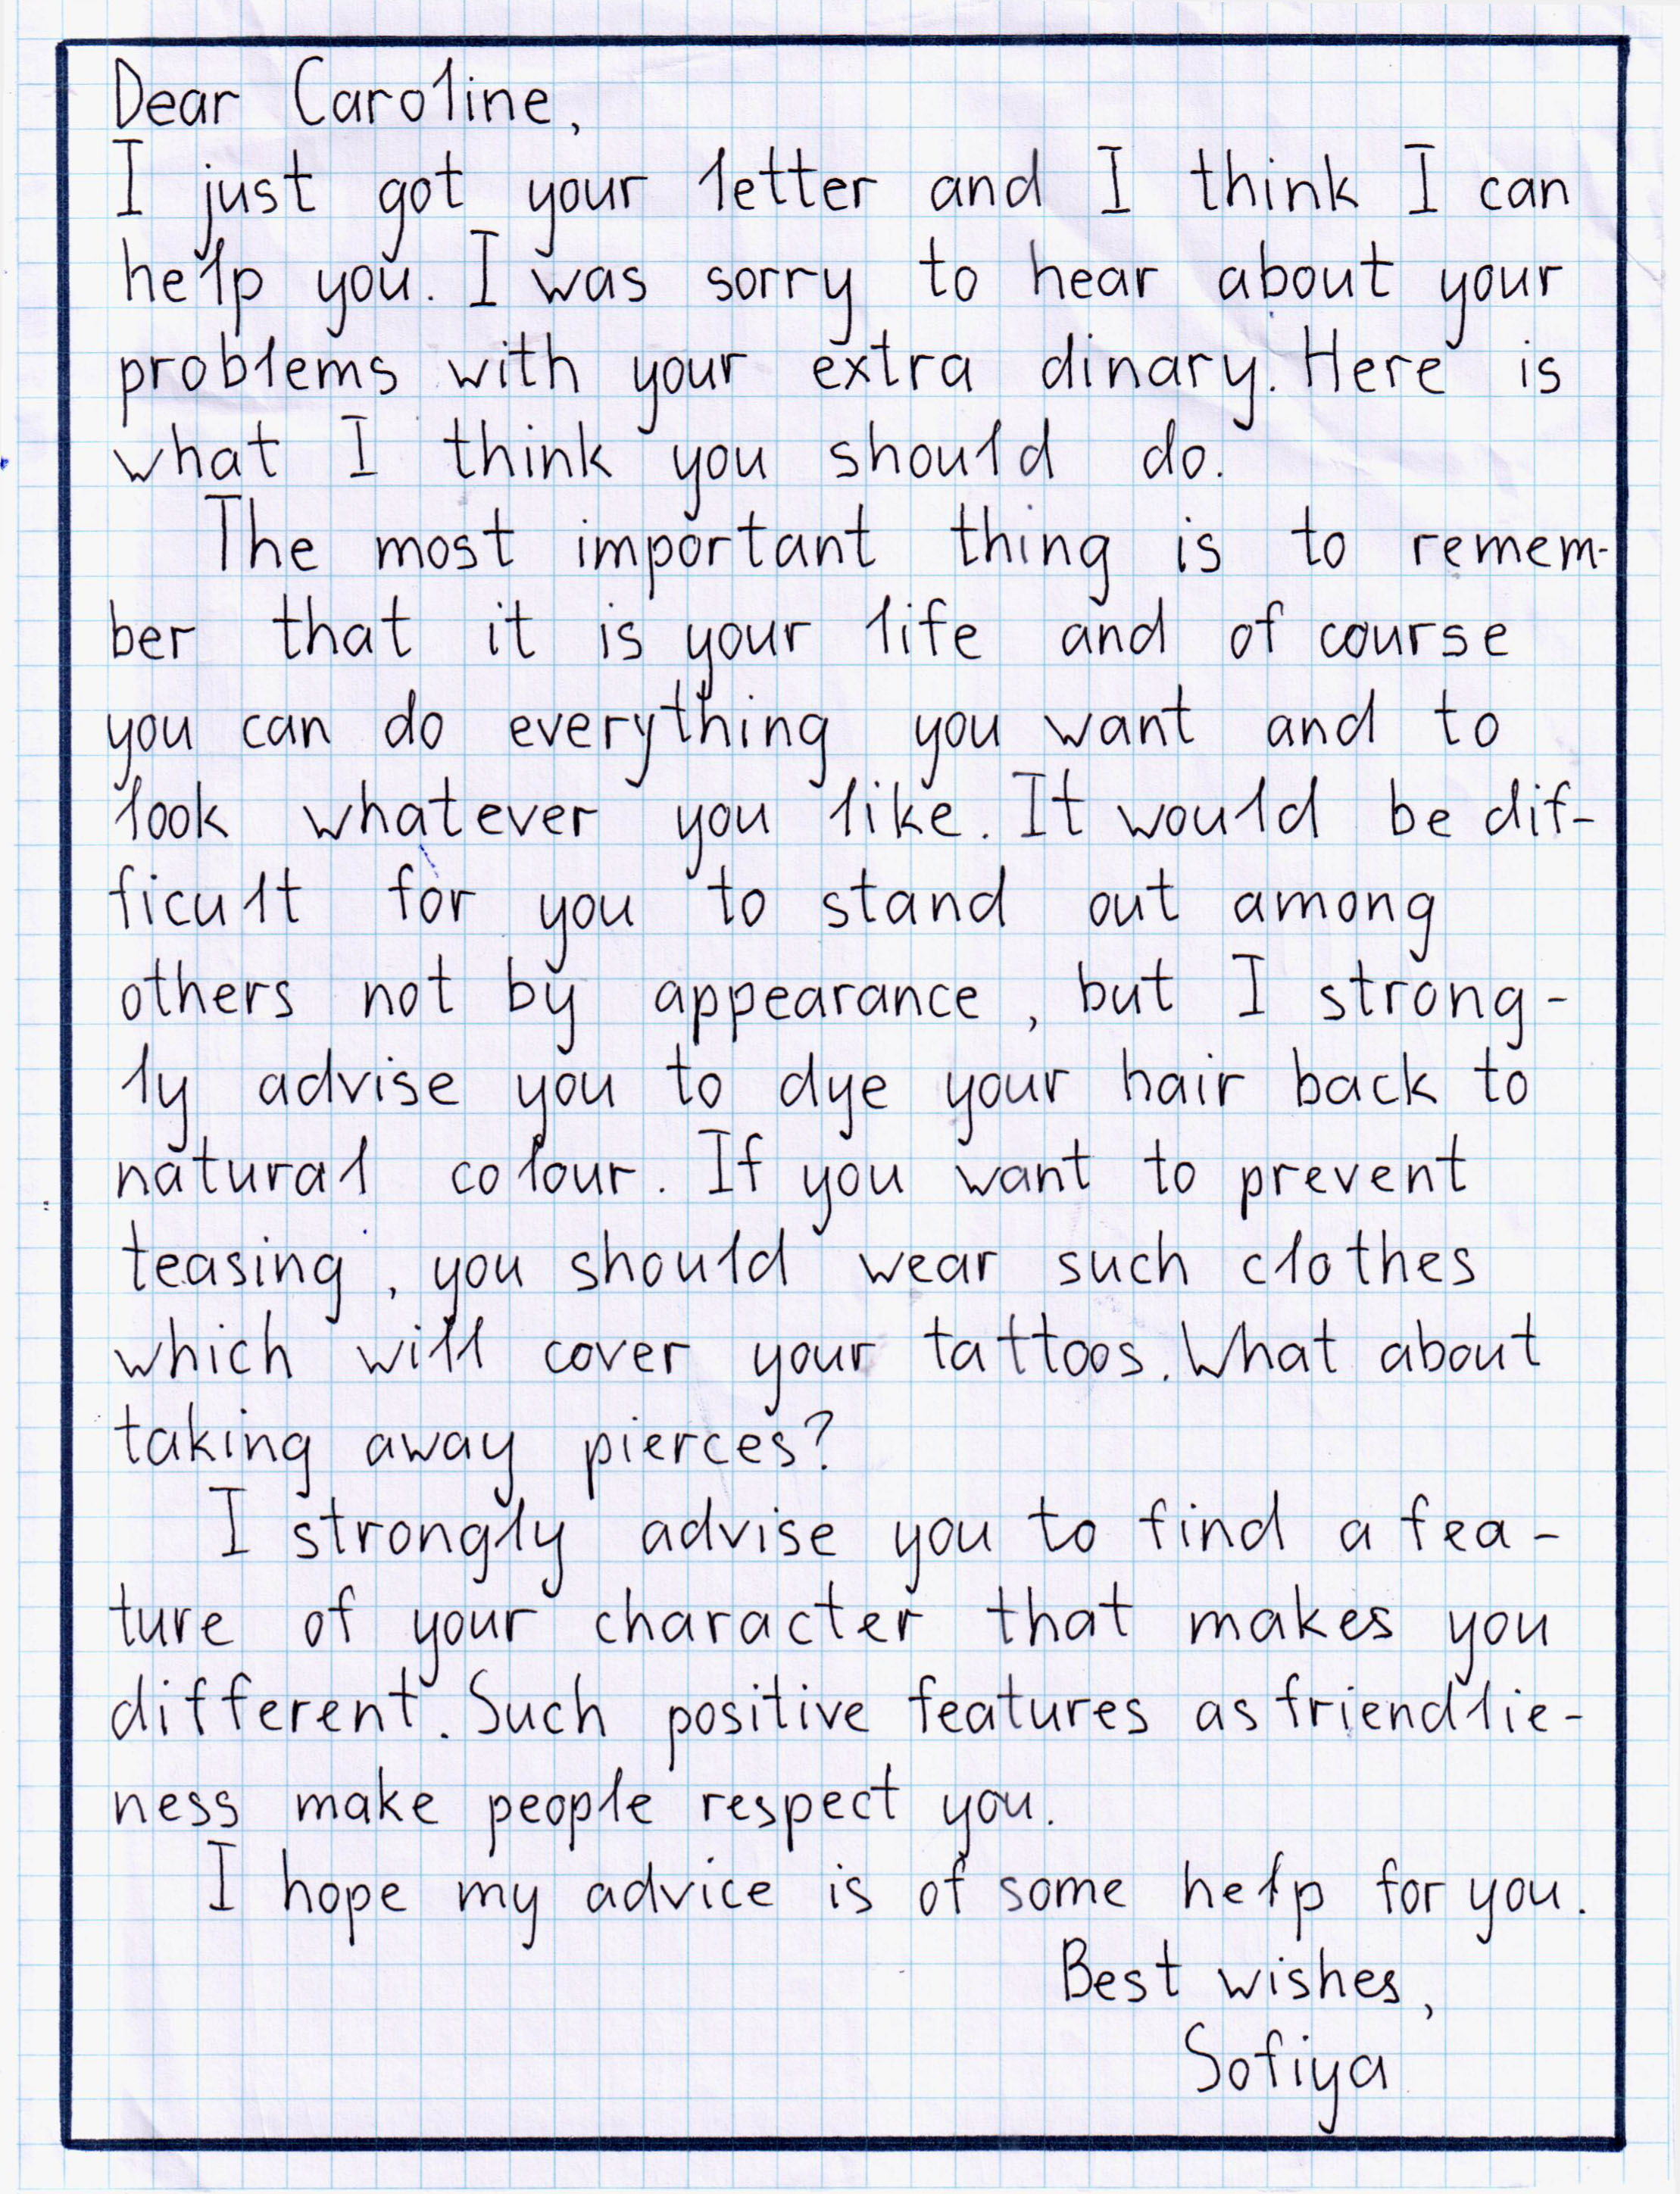 Dear Caroline,
I just got your letter and I think I can
help you. I was sorry to hear about your
problems with your extra dinary. Here is
what I think you should do.
The most important thing is to remem-
ber that it is your life and of course
you can do everything you want and to
look whatever you like. It would be dif-
ficult for you to stand out among
others not by appearance, but I strong-
ly advise you to dye your hair back to
natural colour. If you want to prevent
teasing, you should wear such clothes
which will cover your tattoos. What about
taking away pierces?
I strongly advise you to find a fea-
ture of your character that makes you
different. Such positive features as friendlie-
ness make people respect you.
I hope my advice is of some help for you.
Best wishes,
Sofiya